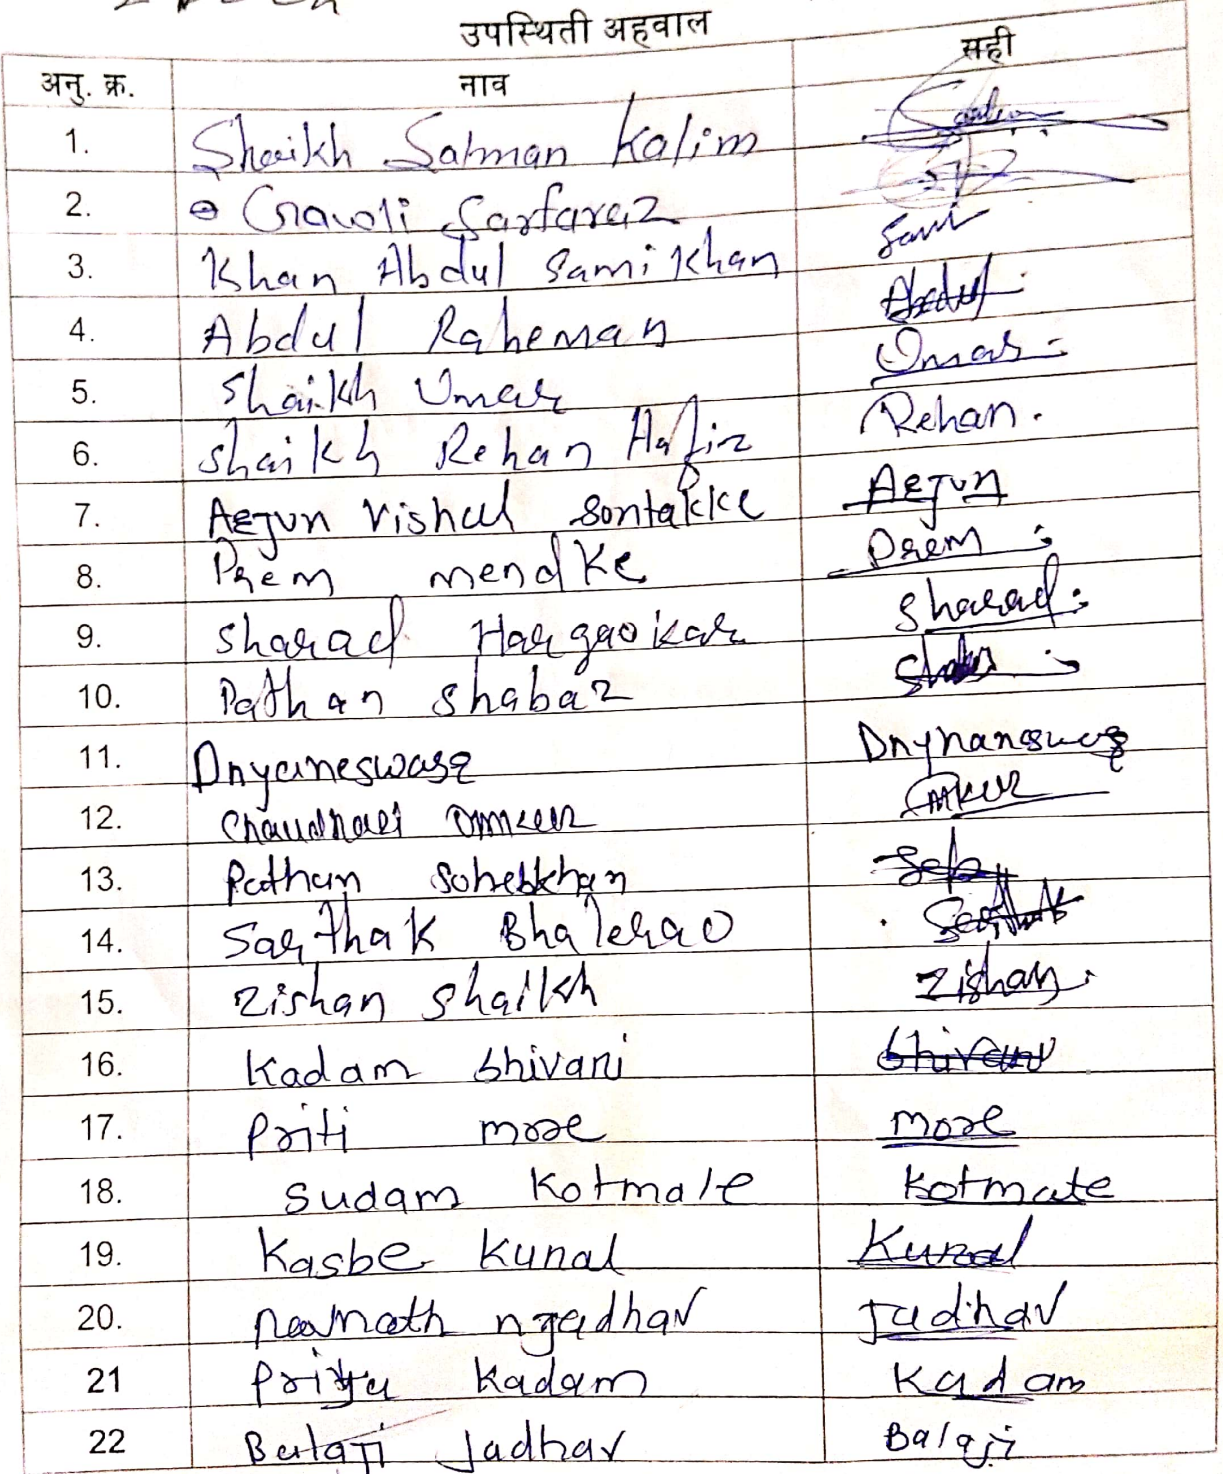 उपस्थिती अहवाल
अनु. क्र. नाव सही
1. Shaikh Salman Kalim
2. Gawli Sarfaraz
3. Khan Abdul Sami Khan Sami
4. Abdul Raheman Abdul
5. Shaikh Umar Omar
6. Shaikh Rehan Hafiz Rehan.
7. Arjun Vishal Sontakke Arjun
8. Prem mendke Prem
9. Sharad Hargaokar Sharad
10. Pathan Shabaz
11. Dnyaneswar Dnynanswar
12. Chaudhari Omkar Omkar
13. Pathan Sohebkhan
14. Sarthak Bhalerao Sarthak
15. Zishan Shaikh Zishan
16. Kadam Shivani Shivani
17. Priti more more
18. Sudam Kotmale Kotmate
19. Kasbe Kunal Kunal
20. njadhav Jadhav
21 Priya Kadam Kadam
22 Balaji Jadhav Balaji